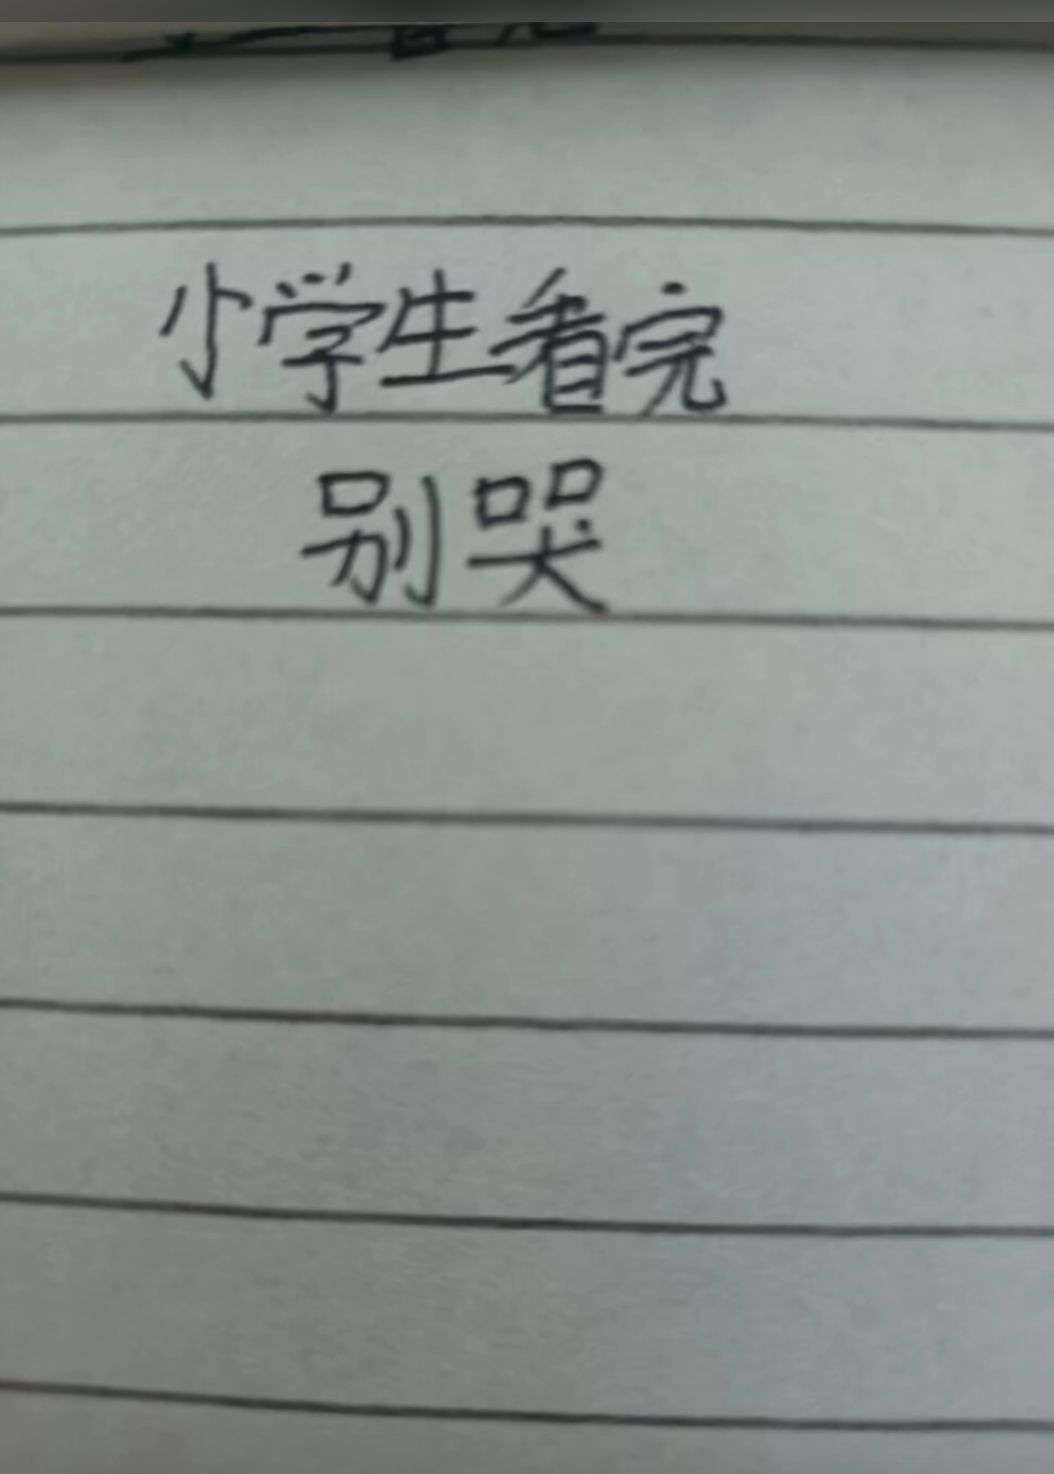 小学生看完
别哭